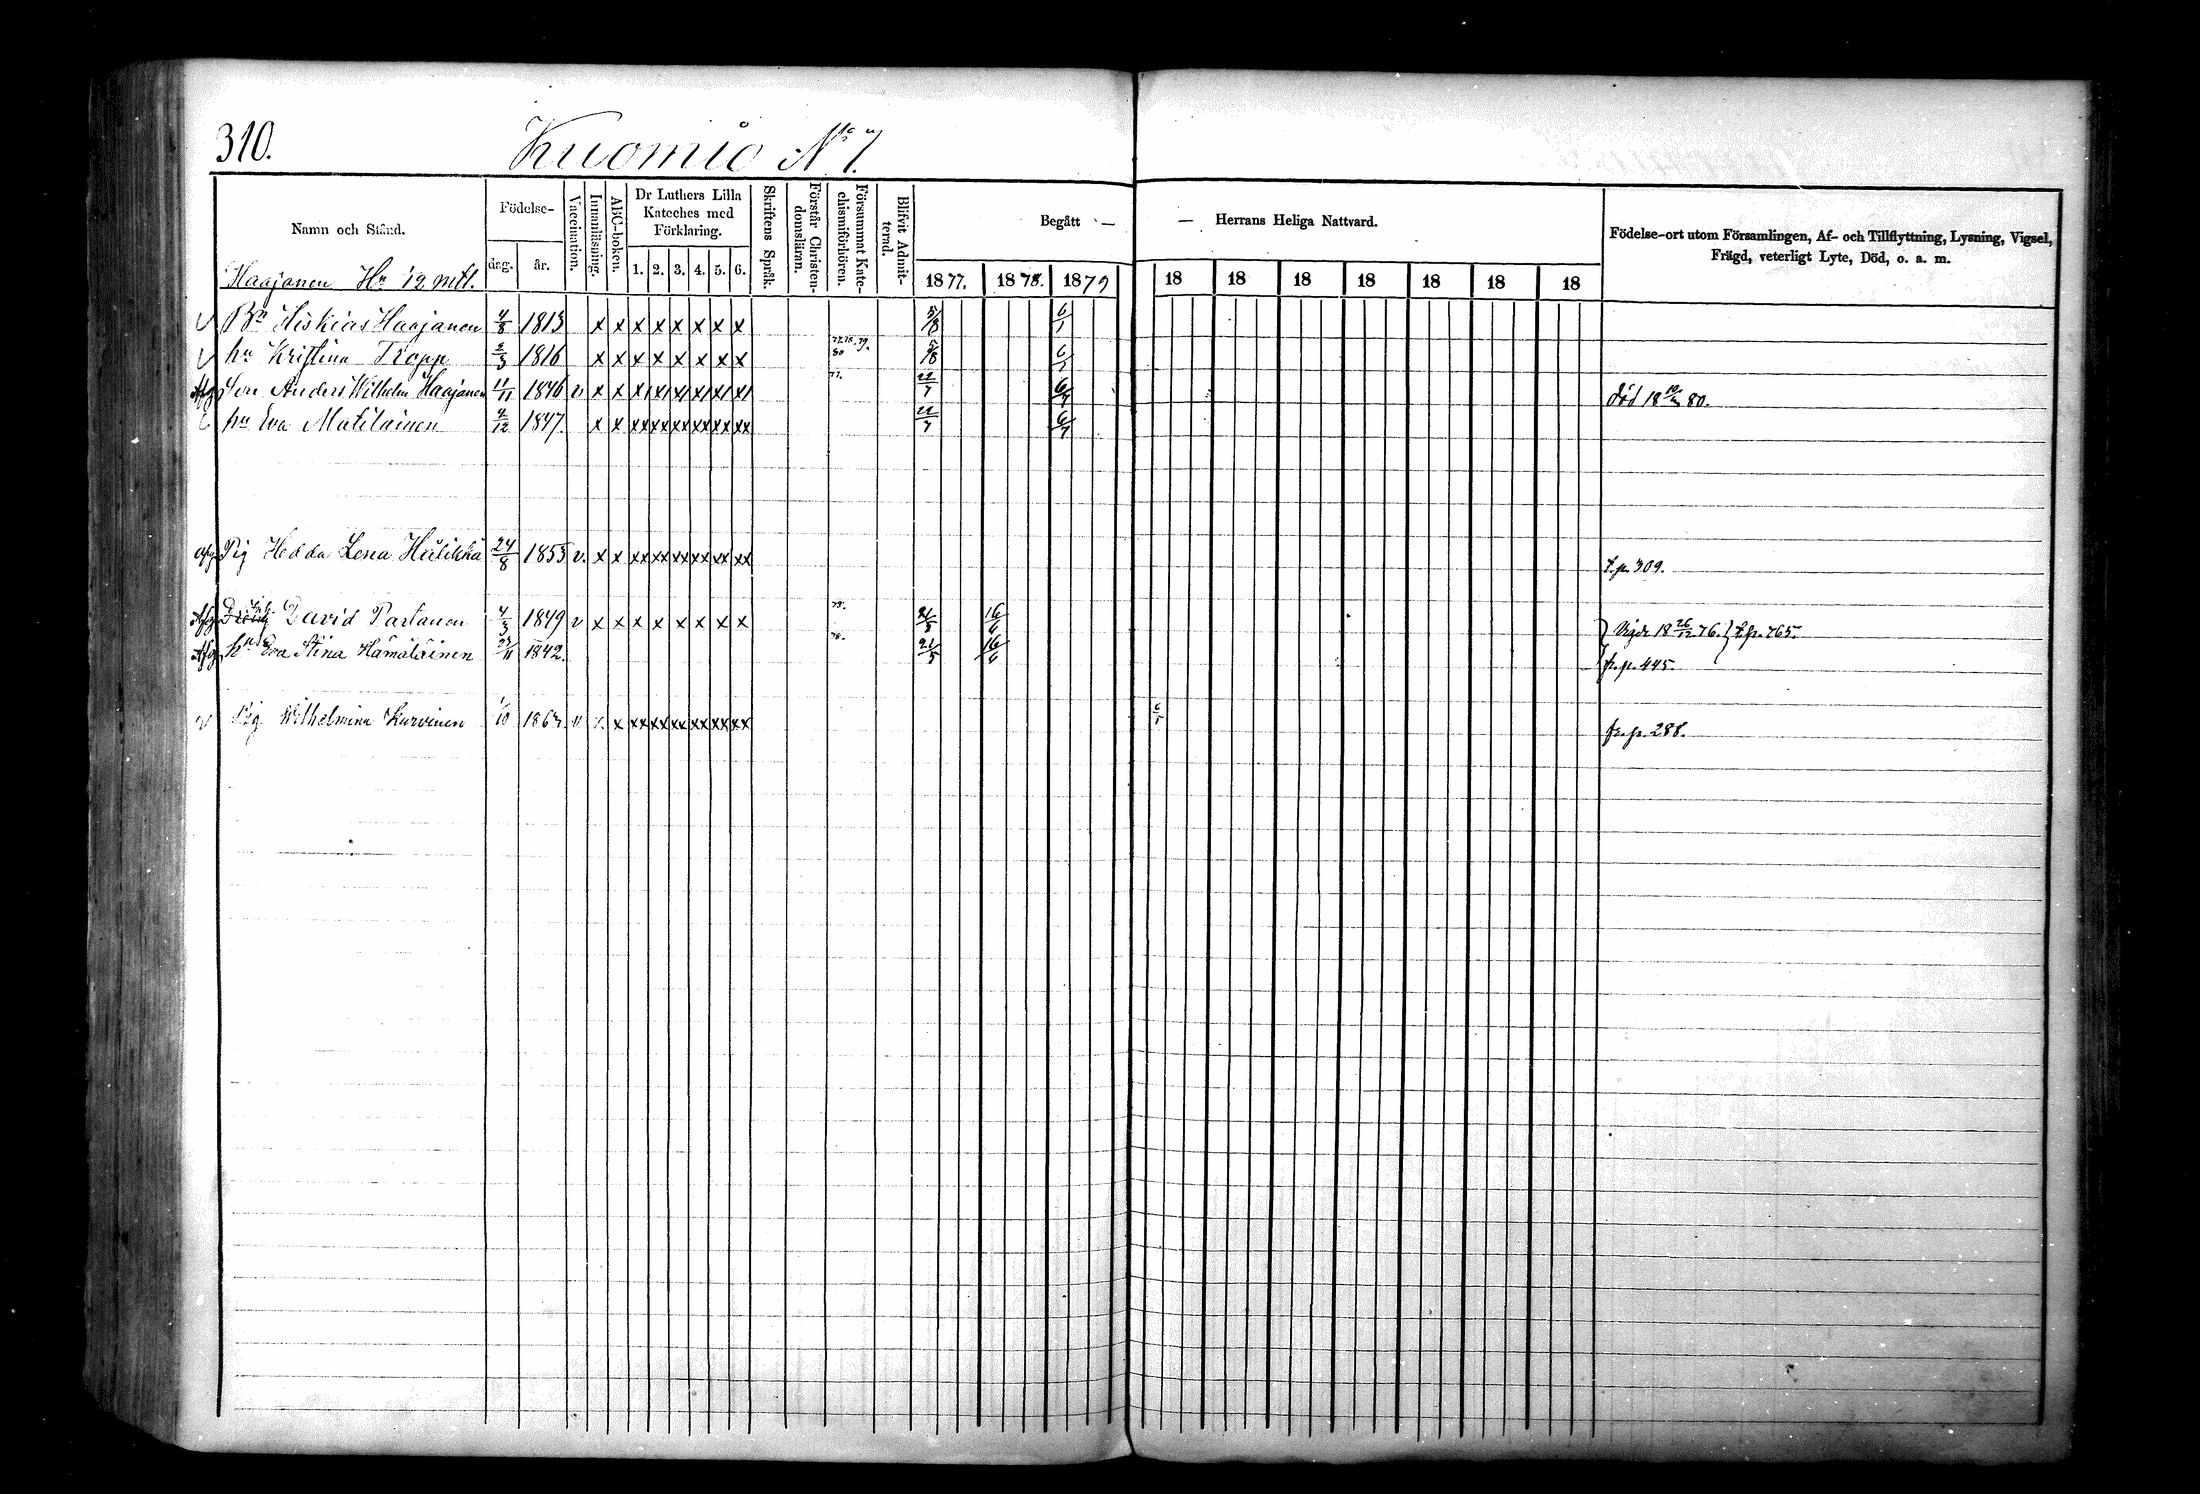 310.
Kuomio No 7.
Namn och Stånd.
Födelse-
dag.
år.
Vaccination.
Innanläsning.
ABC-boken.
Dr Luthers Lilla Kateches med Förklaring.
1. 2. 3. 4. 5. 6.
Skriftens Språk.
Förstår Christendomsläran.
Försummat Katechismiförhören.
Blifvit Admitterad.
Begått —
— Herrans Heliga Nattvard.
1877. 1878. 1879 18 18 18 18 18 18 18
Födelse-ort utom Församlingen, Af- och Tillflyttning, Lysning, Vigsel,
Frägd, veterligt Lyte, Död, o. a. m.
Haajanen Hn 12 mtl.
v Bn Hiskias Haajanen 4/8 1813 x x x x x x x x 5/8 6/7
v hu Kristina Tropp 1816 x x x x x x x x 77. 78. 79. 80 5/8 6/7
Afg Son Anders Wilhelm Haajanen 11/11 1846 v x x x x x x x x 77. 22/7 6/7 död 18 80.
hu Eva Matilainen 4/12 1847. x x xx xx xx xx xx xx 22/7 6/7
afg Pig Hedda Lena Hulikka 24/8 1855 v. x x xx xx xx xx xx xx t. p. 309.
Afg Dräng David Partanen 4/3 1849 v x x x x x x x x 78. 21/5 16/6 Vigde 18 26/12 76. t. p. 765.
Afg hu Eva Stina Hämäläinen 1842. 78. 21/5 16/6 fr. p. 445.
v Pig Wilhelmina Kurvinen 1/10 1863. v x x xx xx xx xx xx xx fr. p. 288.